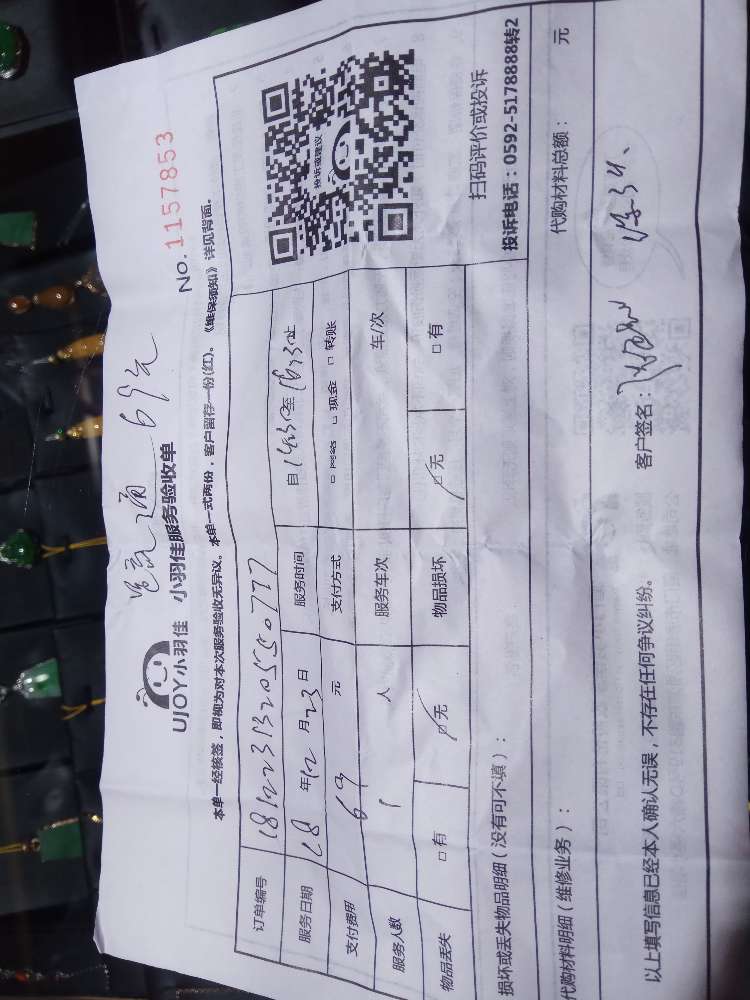 管道疏通 69元
UJOY小羽佳 小羽佳服务验收单
No. 1157853
本单一经核签，即视为对本次服务验收无异议。本单一式两份，客户留存一份(红)。《维保须知》详见背面。
订单编号 1812231320550777
服务日期 18 年 12 月 23 日 服务时间 自 14:30 至 16:30 止
支付费用 69 元 支付方式 □ 网络 □ 现金 □ 转账
服务人数 1 人 服务车次 车/次
物品丢失 □ 有 □ 无 物品损坏 □ 无 □ 有
投诉或建议
扫码评价或投诉
投诉电话：0592-5178888转2
损坏或丢失物品明细（没有可不填）：
代购材料明细（维修业务）： 代购材料总额： 元
以上填写信息已经本人确认无误，不存在任何争议纠纷。 客户签名：